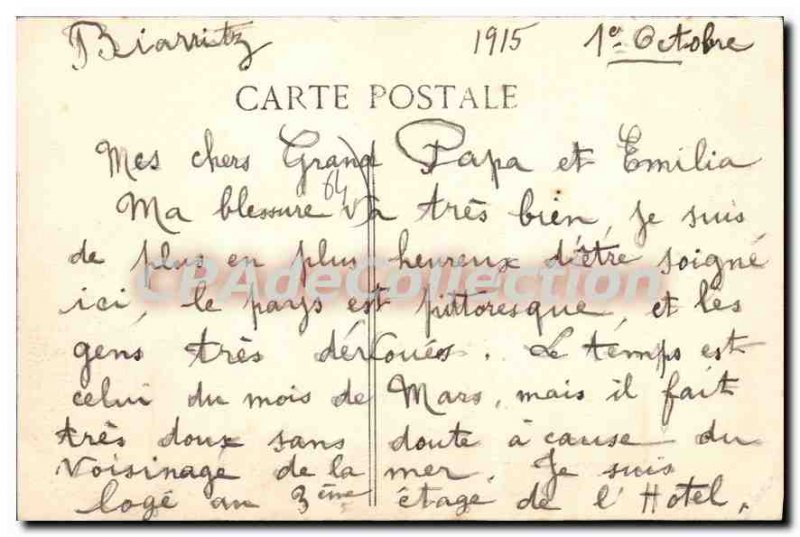 Biarritz 1915 1er Octobre
CARTE POSTALE
Mes chers Grand Papa et Emilia
64
Ma blessure va très bien, je suis
de plus en plus heureux d'être soigné
CPAdeCollection
ici, le pays est pittoresque, et les
gens très dévoués. Le temps est
celui du mois de Mars, mais il fait
très doux sans doute à cause du
voisinage de la mer. Je suis
logé au 3ème étage de l'Hotel,